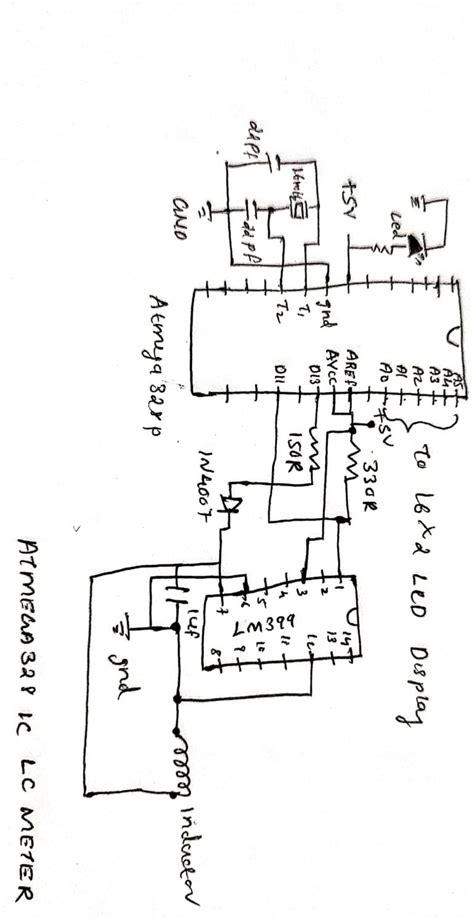 ATMEGA328 IC LC METER
To 16x2 LED Display
Led
+5V
16mHz
22pf
22pf
GND
Atmega328p
A5
A4
A3
A2
A1
A0
ARef
AVCC
D13
D11
gnd
T1
T2
+5V
330R
150R
1N4007
LM399
1
2
3
4
5
6
7
8
9
10
11
12
13
14
1uf
gnd
Inductor